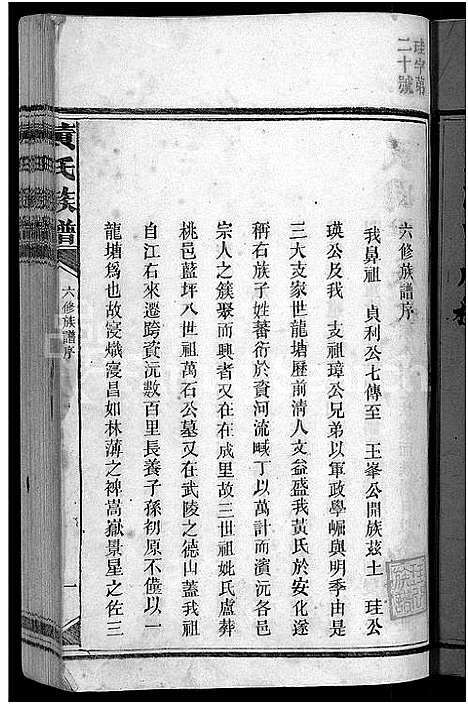 珪字第
二十號
六修族譜序
我鼻祖　貞利公七傳至　玉峯公開族茲土　珪公
瑛公及我　支祖璋公兄弟以軍政學崛與明季由是
三大支家世龍塘歷前清人文益盛我黃氏於安化遂
稱右族子姓蕃衍於資河流域丁以萬計而濱沅各邑
宗人之簇聚而興者又在在成里故三世祖妣氏盧葬
桃邑藍坪八世祖萬石公墓又在武陵之德山蓋我祖
自江右來遷跨資沅數百里長養子孫初原不僅以一
龍塘爲也故寖熾寖昌如林薄之裨嵩嶽景星之佐三
黃氏族譜
六修族譜序
一